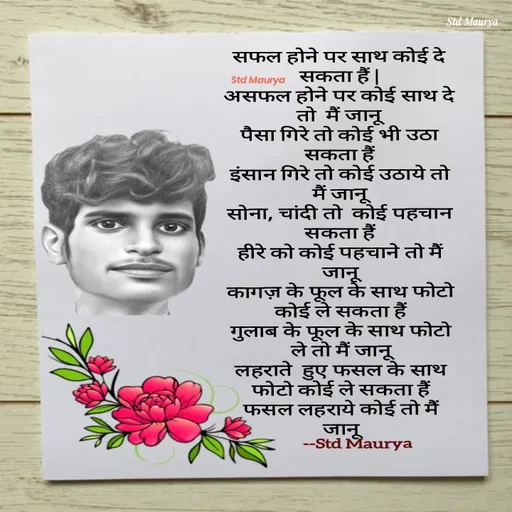 Std Maurya
सफल होने पर साथ कोई दे
Std Maurya सकता हैं |
असफल होने पर कोई साथ दे
तो मैं जानू
पैसा गिरे तो कोई भी उठा
सकता हैं
इंसान गिरे तो कोई उठाये तो
मैं जानू
सोना, चांदी तो कोई पहचान
सकता हैं
हीरे को कोई पहचाने तो मैं
जानू
कागज़ के फूल के साथ फोटो
कोई ले सकता हैं
गुलाब के फूल के साथ फोटो
ले तो मैं जानू
लहराते हुए फसल के साथ
फोटो कोई ले सकता हैं
फसल लहराये कोई तो मैं
जानू
--Std Maurya